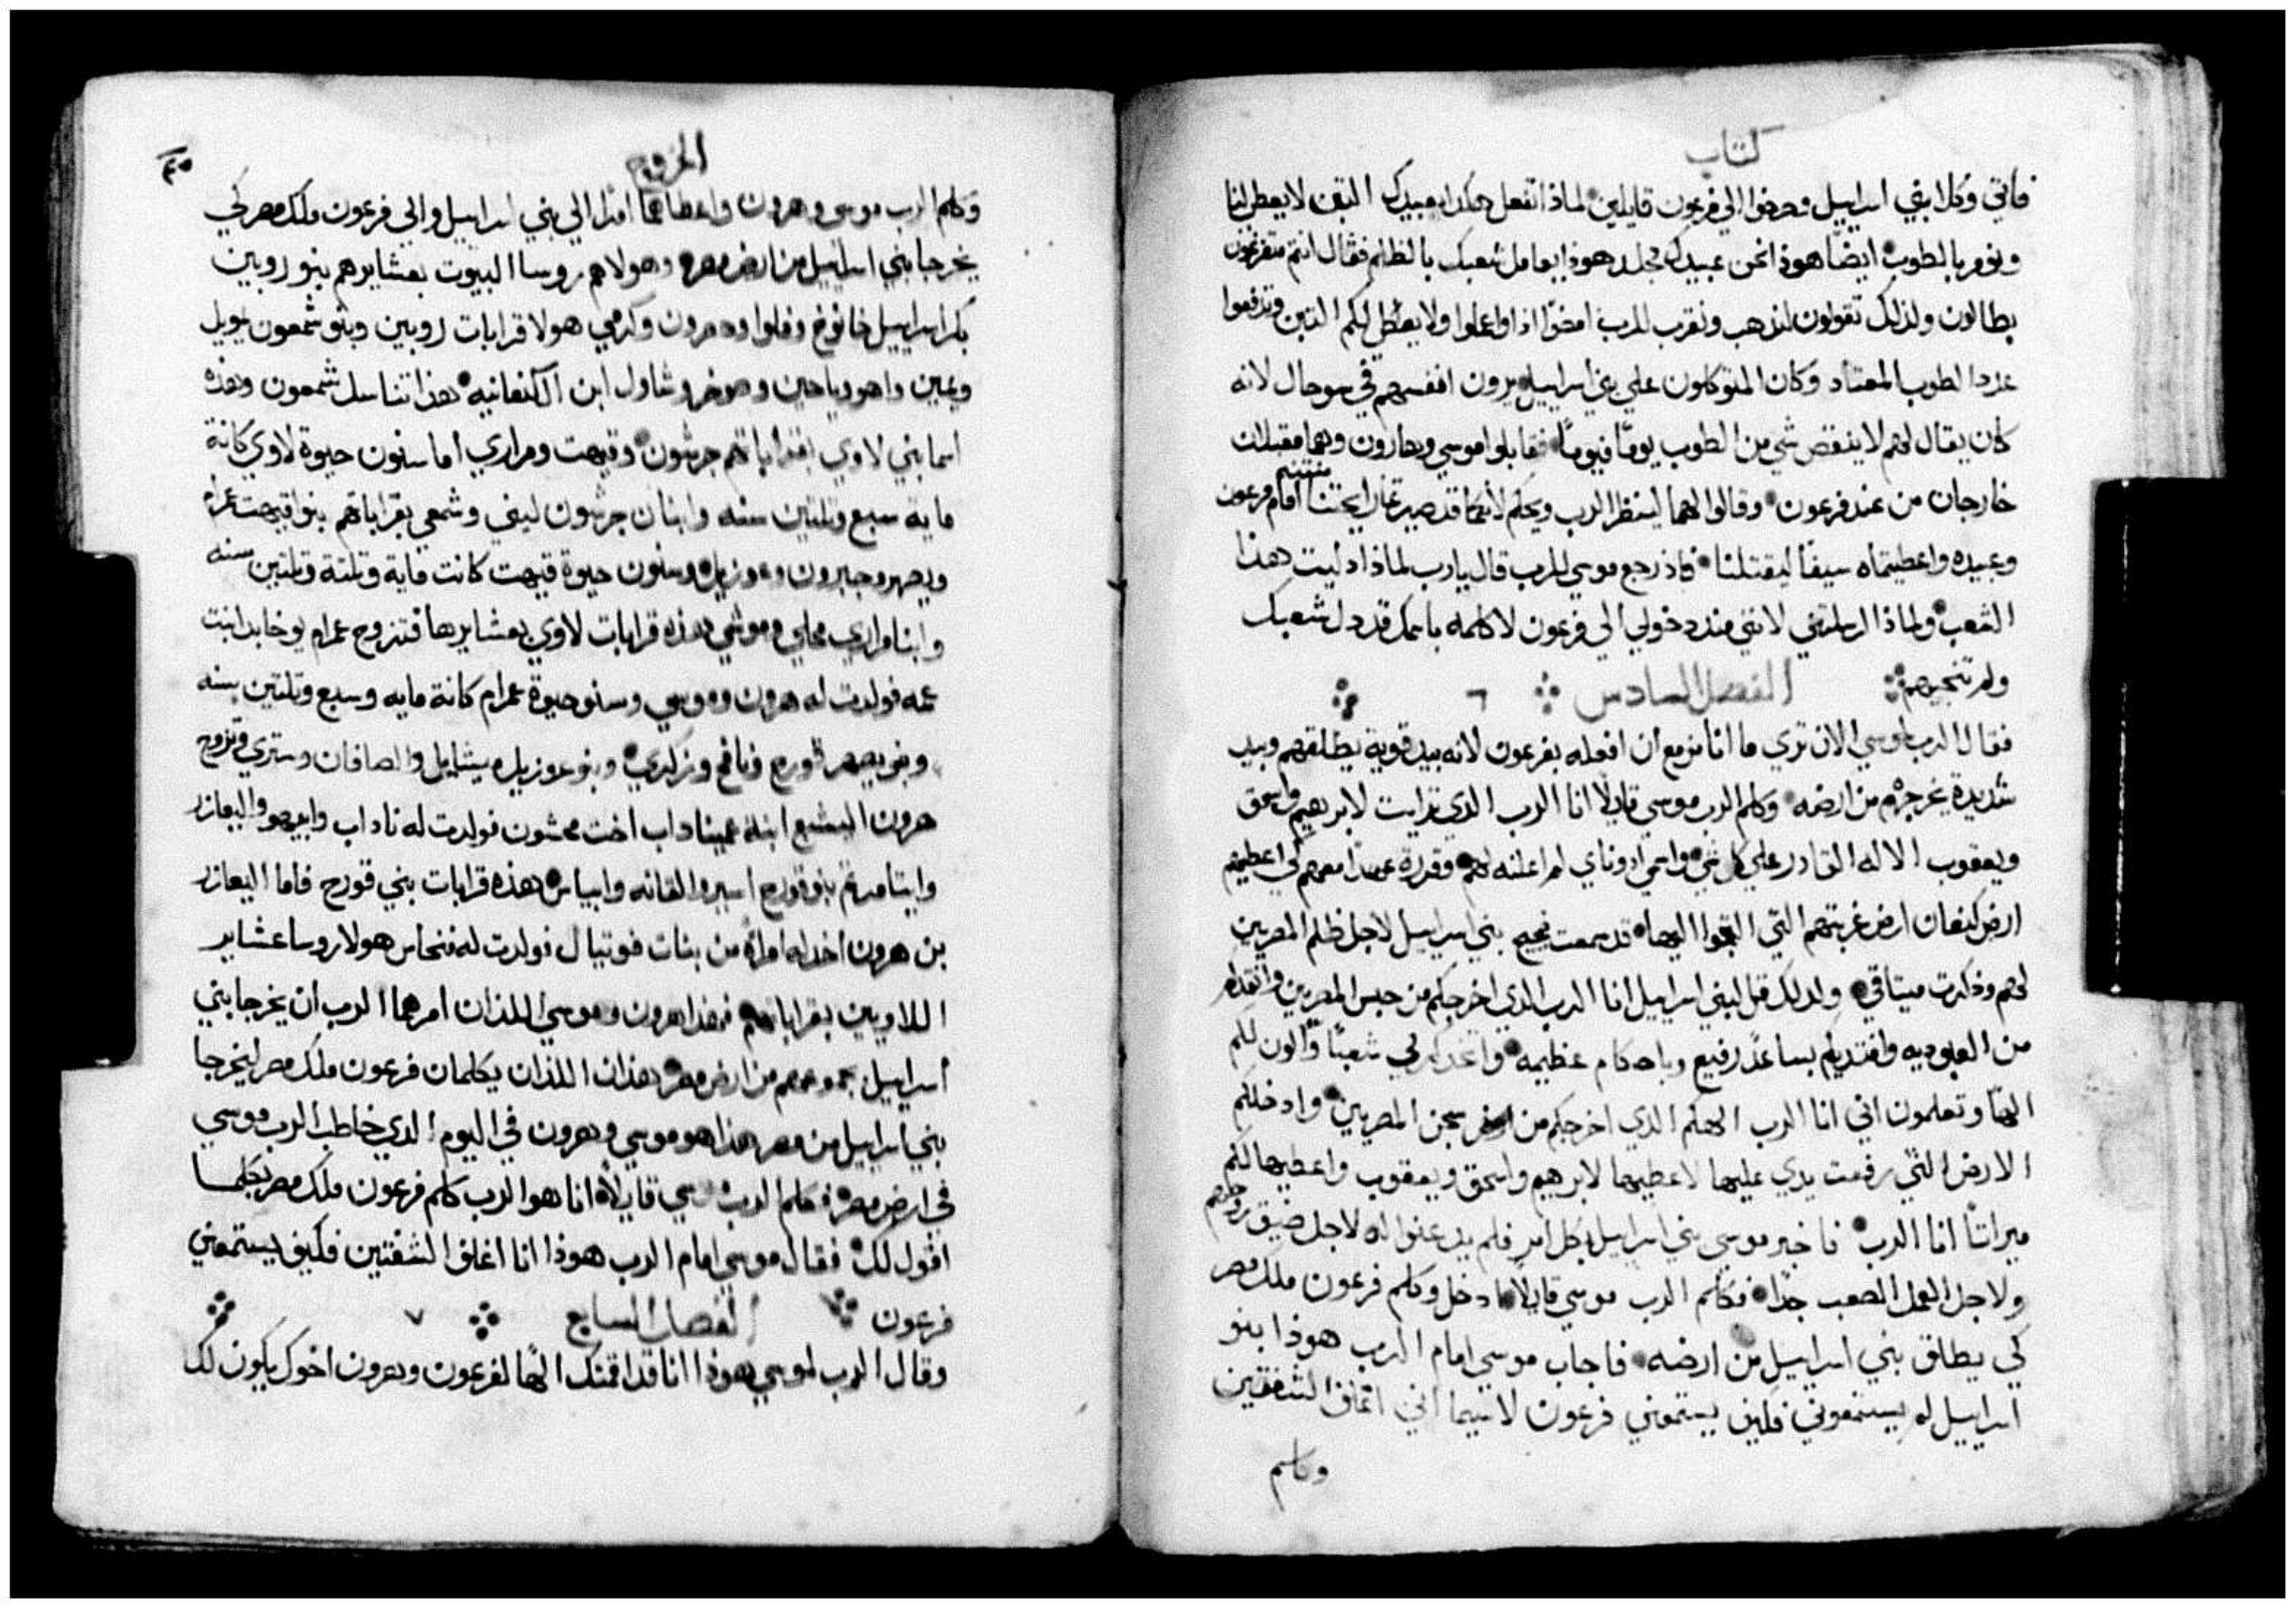 كتاب
فاتي وكلا بني اسراييل وصرخوا الي فرعون قايلين لماذا تفعل هكذا بعبيدك التبن لا يعطي لنا
ونومر بالطوب ايضا هوذا نحن عبيدك نجلد هوذا يعامل شعبك بالظلم فقال انتم متفرغون
بطالون ولذلك تقولون لنذهب ونقرب للرب امضوا اذا واعملوا ولا يعطي لكم التبن وتدفعوا
عدد الطوب المعتاد وكان المتوكلون علي بني اسراييل يرون انفسهم في سو حال لانه
كان يقال لهم لا ينقص شي من الطوب يوما فيوما فقابلوا موسي وهارون وهما مقبلان
خارجان من عند فرعون وقالوا لهما لينظر الرب ويحكم لانكما قد صيرتما رايحتنا منتنه امام فرعون
وعبيده واعطيتماه سيفا ليقتلنا فاذ رجع موسي للرب قال يارب لماذا اذليت هذا
الشعب ولماذا ارسلتني لانني منذ دخولي الي فرعون لاكلمه باسمك قد ذل شعبك
ولم تنجيهم الفصل السادس ٦
فقال الرب لموسي الان تري ما انا مزمع ان افعله بفرعون لانه بيد قوية يطلقهم وبيد
شديدة يخرجهم من ارضه وكلم الرب موسي قايلا انا الرب الذي ترايت لابرهيم واسحق
ويعقوب الاله القادر علي كل شي واسمي ادوناي لم اعلنه لهم وقررة عهدا معهم كي اعطيهم
ارض كنعان ارض غربتهم التي التجوا اليها قد سمعت ضجيج بني اسراييل لاجل ظلم المصريين
لهم وذكرت ميتاقي ولذلك قل لبني اسراييل انا الرب الذي اخرجكم من حبس المصريين وانقذكم
من العبوديه وافتديكم بساعد رفيع وباحكام عظيمه واتخذكم لي شعبا واكون لكم
الها وتعلمون اني انا الرب الهكم الذي اخرجكم من ارض سجن المصريين وادخلكم
الارض التي رفعت يدي عليها لاعطيها لابرهيم واسحق ويعقوب واعطيها لكم
ميراتا انا الرب فاخبر موسي بني اسراييل بكل امر فلم يذعنوا له لاجل ضيق روحهم
ولاجل العمل الصعب جدا فكلم الرب موسي قايلا ادخل وكلم فرعون ملك مصر
كي يطلق بني اسراييل من ارضه فاجاب موسي امام الرب هوذا بنو
اسراييل لم يستمعوني فكيف يستمعني فرعون لاسيما اني اغلف الشفتين
وكلم
الخروج
٤٥
وكلم الرب موسي وهرون واعطاهما امرا الي بني اسراييل والي فرعون ملك مصر كي
يخرجا بني اسراييل من ارض مصر وهولاهم روسا البيوت بعشايرهم بنو روبين
بكر اسراييل خانوخ وفلوا وحصرون وكرمي هولا قرابات روبين وبنو شمعون يمويل
ويمين واهود ياحين وصوخر وشاول ابن الكنعانيه هذا تناسل شمعون وهذه
اسما بني لاوي بقراباتهم جرشون وقيهت ومراري اما سنون حيوة لاوي كانة
مايه سبع وتلتين سنه وابنان جرشون ليني وشمعي بقراباتهم بنو اقيهت عمرام
ويصهر وحبرون وعوزيل وسنون حيوة قيهت كانت ماية وتلتة وتلتين سنه
وابنا مراري محلي وموشي هذه قرابات لاوي بعشايرها فتزوج عمرام يوخابد ابنت
عمه فولدت له هرون وموسي وسنو حيوة عمرام كانة مايه وسبع وتلتين سنه
وبنو يصهر قورح ونافج وزكري وبنو عوزيل ميشايل والصافان وستري وتزوج
هرون اليشبع ابنة عميناداب اخت نحشون فولدت له ناداب وابيهو واليعازر
وايتامر تم بنو قورح اسير والقانه وابياس هذه قرابات بني قورح فاما اليعازر
بن هرون اخد له امراة من بنات فوتيال فولدت له فنحاس هولا روسا عشاير
اللاويين بقراباتهم فهذا هرون وموسي اللذان امرهما الرب ان يخرجا بني
اسراييل بجموعهم من ارض مصر هذان اللذان يكلمان فرعون ملك مصر ليخرجا
بني اسراييل من مصر هذا هو موسي وهرون في اليوم الذي خاطب الرب موسي
في ارض مصر فكلم الرب موسي قايلا انا هو الرب كلم فرعون ملك مصر بكلما
اقول لك فقال موسي امام الرب هوذا انا اغلف الشفتين فكيف يستمعني
فرعون الفصل السابع ٧
وقال الرب لموسي هوذا انا قد اقمتك الها لفرعون وهرون اخوك يكون لك